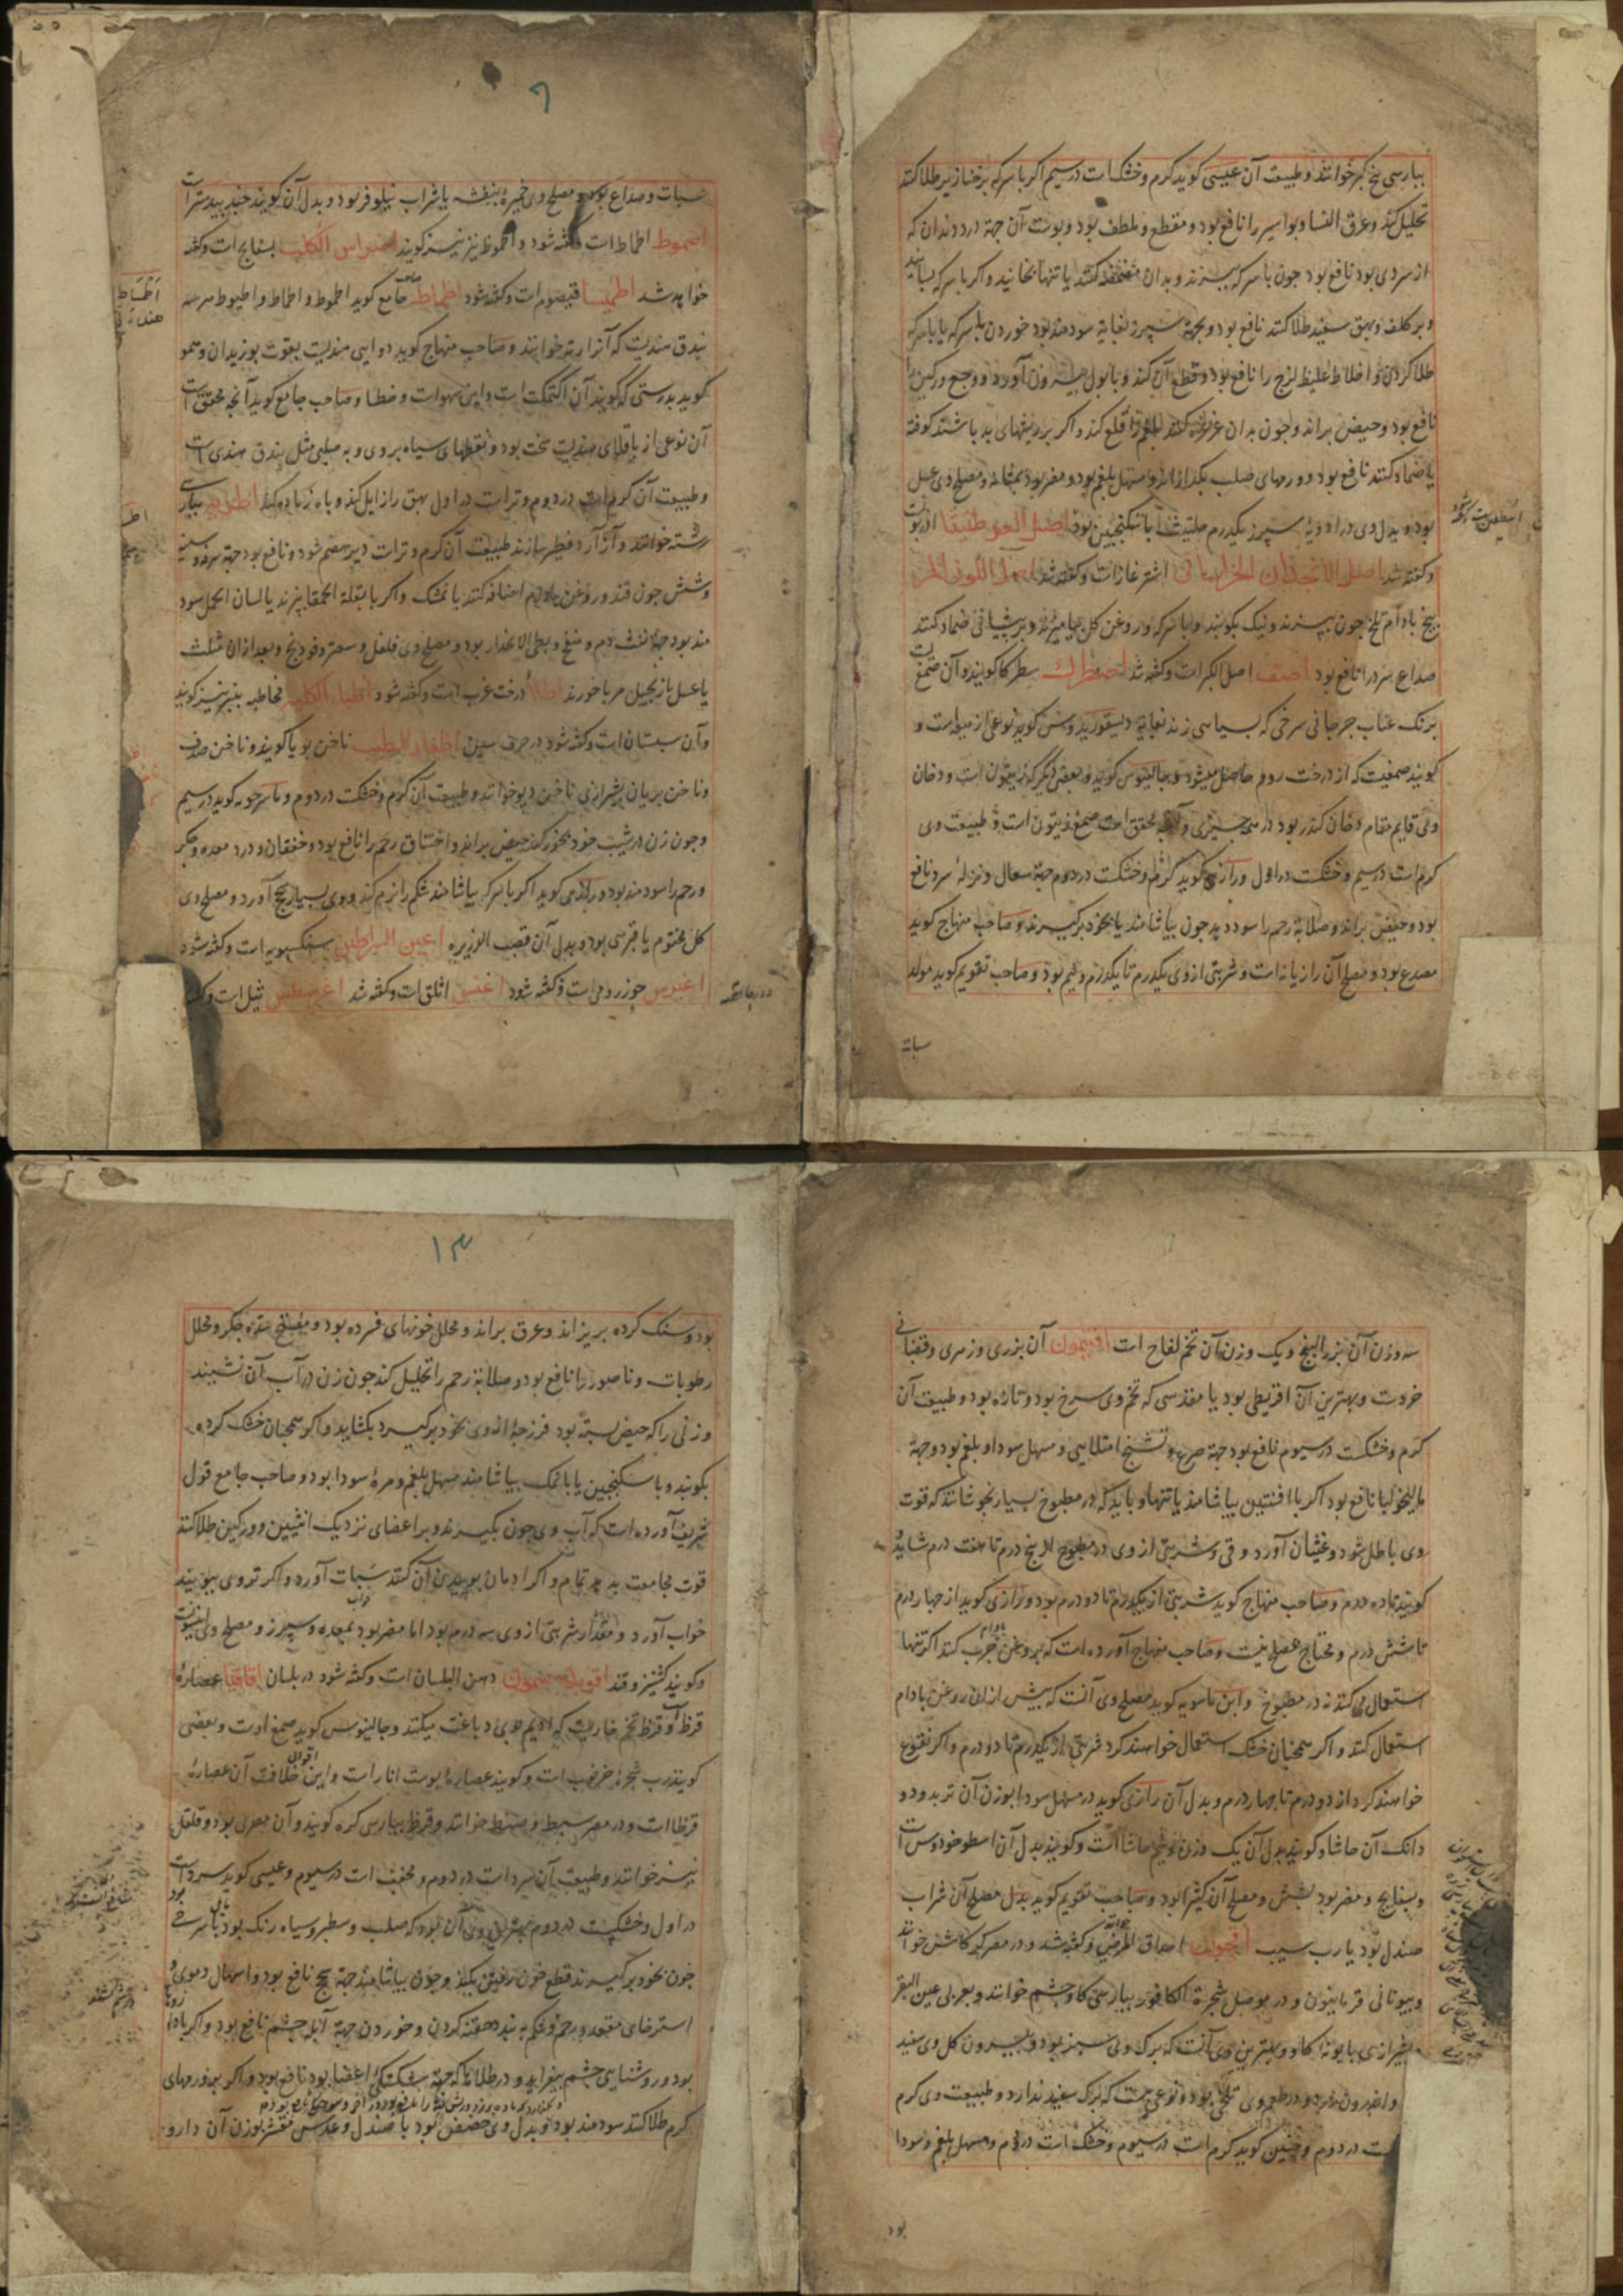 بپارسی بیخ کبر خوانند و طبیعت آن عیسی کوید کرم و خشکست در سیم اکر با سرکه بر خنازیر طلا کنند
تحلیل کند و عرق النسا و بواسیر را نافع بود و مقطع و ملطف بود و پوست آن جهة درد دندان که
از سردی بود نافع بود چون با سرکه بپزند و بدان مضمضه کنند یا تنها بخایند و اکر با سرکه بسایند
و بر کلف و بهق سفید طلا کنند نافع بود و بجهة سپرز بغایة سودمند بود خوردن با سرکه یا با سرکه
طلا کردن و اخلاط غلیظ لزج را نافع بود و قطع آن کند و با بول بیرون آورد و وجع ورکین را
نافع بود و حیض براند و چون بدان غرغره کنند بلغم را قلع کند و اکر بر ریشهای بد باشند کوفته
یا ضماد کنند نافع بود و ورمهای صلب بکدازاند و مسهل بلغم بود و مضر بود بمثانه و مصلح وی عسل
بود و بدل وی در ادویهٔ سپرز یکدرم حلتیت با سکنجبین بود اصل العرطنیثا
و کفته شد اصل الانجدان الخراسانی اشترغازست و کفته شد اصل اللوز المر
بیخ بادام تلخ چون بپزند و نیک بکوبند و با سرکه و روغن کل بیامیزند و بر پیشانی ضماد کنند
صداع سر را نافع بود اصف اصل الکبرست و کفته شد اصطرک سطرکا کویند و آن صمغیست
برنک عناب جرجانی سرخی که بسیاسی زند بغایة دیسقوریدوس کوید نوعی از میعه است و
کویند صمغیست که از درخت روم حاصل میشود و جالینوس کوید و بعضی دیکر که زیتون است و دخان
وی قایم مقام دخان کندر بود در همه چیزی و آنچه محقق است صمغ زیتون است و طبیعت وی
کرم است در سیم و خشکست در اول و رازی کوید کرم و خشکست در دوم جهة سعال و نزلهٔ سرد نافع
بود و حیض براند و صلابة رحم را سود دهد چون بیاشامند یا بخود برکیرند و صاحب منهاج کوید
مصدع بود و مصلح آن رازیانه است و شربتی از وی یکدرم تا یکدرم و نیم بود و صاحب تقویم کوید مولد
سبات
۹
سبات و صداع بود و مصلح وی خمیرهٔ بنفشه یا شراب نیلوفر بود و بدل آن کویند جندبیدستر است
اصموط اطماط است و کفته شود و اطموط نیز کویند اضراس الکلب بسفایج است و کفته
خواهد شد اطمیسا قیصوم است و کفته شود اطماط صاحب جامع کوید اطموط و اطماط و اطیوط سه
بندق هندیست که آنرا رته خوانند و صاحب منهاج کوید دوایی هندیست بقوت بوزیدان و سهو
کوید بدرستی که کویند آن اکتمکت است و این سهو است و خطا و صاحب جامع کوید آنچه محقق است
آن نوعی از باقلای هندیست سخت بود و نقطهای سیاه بر وی و به صلبی مثل بندق هندی است
و طبیعت آن کرم است در دوم و تر است در اول بهق را زایل کند و باه زیاده کند اطریه بپارسی
رشته خوانند و آن آرد فطیر سازند طبیعت آن کرم و تر است دیر هضم شود و نافع بود جهة سرفه و سینه
و شش چون قند و روغن بادام اضافه کنند یا نمشک و اکر با بقلة الحمقا پزند یا لسان الحمل سود
مند بود جهة نفث دم و منفخ و بطی الانحدار بود و مصلح وی فلفل و سعتر و فودنج و بعد از آن مثلث
یا عسل یا زنجبیل مربا خورند اطلا درخت غرب است و کفته شود اطباء الکلبه مخاطه نیز کویند
و آن سبستان است و کفته شود در حرف سین اظفار الطیب ناخن بویا کویند و ناخن صدف
و ناخن بریان بشیرازی ناخن دیو خوانند و طبیعت آن کرم و خشکست در دوم و ماسرجویه کوید در سیم
و چون زن در شیب خود بخور کند حیض براند و اختناق رحم را نافع بود و خفقان و درد معده و جکر
و رحم را سودمند بود و رازی کوید اکر با سرکه بیاشامند شکم را نرم کند و وی بسیار سحج آورد و مصلح وی
کل مختوم یا قبرسی بود و بدل آن قصب الذریره اعین السراطین سنکسبویه است و کفته شود
اغیرس جوز رومی است و کفته شود اغنس اثلق است و کفته شد اغرسطس ثیل است و کفته
سه وزن آن بزر البنج و یک وزن آن تخم لفاح است افتیمون آن بزری و زهری و قضبانی
خردست و بهترین آن اقریطی بود یا مقدسی که تخم وی سرخ بود و تازه بود و طبیعت آن
کرم و خشکست در سیوم نافع بود جهة صرع و تشنج امتلایی و مسهل سودا و بلغم بود و جهة
مالیخولیا نافع بود اکر با افسنتین بیاشامند یا تنها و باید که در مطبوخ بسیار نجوشانند که قوت
وی باطل شود و غثیان آورد و قی و شربتی از وی در مطبوخ از پنج درم تا هفت درم شاید و
کویند تا ده درم و صاحب منهاج کوید شربتی از یکدرم تا دو درم بود و رازی کوید از چهار درم
تا شش درم و محتاج مصلح نیست و صاحب منهاج آورده است که بروغن بادام چرب کنند اکر تنها
استعمال می کنند نه در مطبوخ و ابن ماسویه کوید مصلح وی آنست که پیش از آن روغن بادام
استعمال کنند و اکر همچنان خشک استعمال خواهند کرد شربتی از یکدرم تا دو درم و اکر نقوع
خواهند کرد از دو درم تا چهار درم و بدل آن رازی کوید در مسهل سودا بوزن آن تربد و دو
دانک آن حاشا و کویند بدل آن یک وزن و نیم حاشا است و کویند بدل آن اسطوخودوس است
و بسفایج و مضر بود بشش و مصلح آن کثیرا بود و صاحب تقویم کوید بدل مصلح آن شراب
صندل بود یا رب سیب اقحوان احداق المرضی خوانند و کفته شد و در مصر کرکاش خوانند
و بیونانی فرمانیون و در موصل شجرة الکافور بپارسی کاوچشم خوانند و بعربی عین البقر
بشیرازی بابونهٔ کاو و بهترین وی آنست که برک وی سبز بود و بیرون کل وی سفید
و اندرون زرد و در طعم وی تلخی بود و نوعی هست که برک سفید ندارد و طبیعت وی کرم
است در دوم و حنین کوید کرم است در سیوم و خشک است در دوم و مسهل بلغم و سودا
بود
۱۳
بود و سنک کرده بریزاند و عرق براند و محلل خونهای فسرده بود و مفتح سدهٔ جکر و محلل
رطوبات و ناصور را نافع بود و صلابة رحم را تحلیل کند چون زن در آب آن نشیند
و زنی را که حیض بسته بود فرزجهٔ از وی بخود برکیرد بکشاید و اکر همچنان خشک کرده
بکوبند و با سکنجبین یا با نمک بیاشامند مسهل بلغم و مرهٔ سودا بود و صاحب جامع قول
شریف آورده است که آب وی چون بکیرند و بر اعضای نزدیک انثیین و ورکین طلا کنند
قوت مجامعت بدهد تمام و اکر ادمان بوییدن آن کنند سبات آورد و اکر تر وی ببویند
خواب آورد و مقدار شربتی از وی سه درم بود اما مضر بود بمعده و سپرز و مصلح وی انیسونست
و کویند کشنیز و قند اقوید سمون دهن البلسان است و کفته شود در بلسان اقاقیا عصارهٔ
قرظ است و قرظ تخم خاریست که ادیم بوی دباغت میکنند و جالینوس کوید صمغ اوست و بعضی
کویند رب شجرهٔ خرنوب است و کویند عصارهٔ پوست انار است و این اقوال خلافست آن عصارهٔ
قرظ است و در مصر سبط و صنط خوانند و قرظ بپارسی کره کویند و آن مصری بود و قلقل
نیز خوانند و طبیعت آن سرد است در دوم و مجفف است در سیوم و عیسی کوید سرد است
در اول و خشکست در دوم بهترین وی آن بود که صلب و سطبر و سیاه رنک بود مایل بسرخی
چون بخود برکیرند قطع خون رفتن بکند و چون بیاشامند جهة سحج نافع بود و اسهال دموی و
استرخای مقعد و رحم و شکم ببندد حقنه کردن و خوردن جهة آبله چشم نافع بود و اکر
بود و روشنایی چشم بیفزاید و در طلاها که جهة شکستکی اعضا بود نافع بود و اکر بر ورمهای
کرم طلا کنند سودمند بود و بدل وی حضض بود یا صندل و عدس مقشر بوزن آن دارو